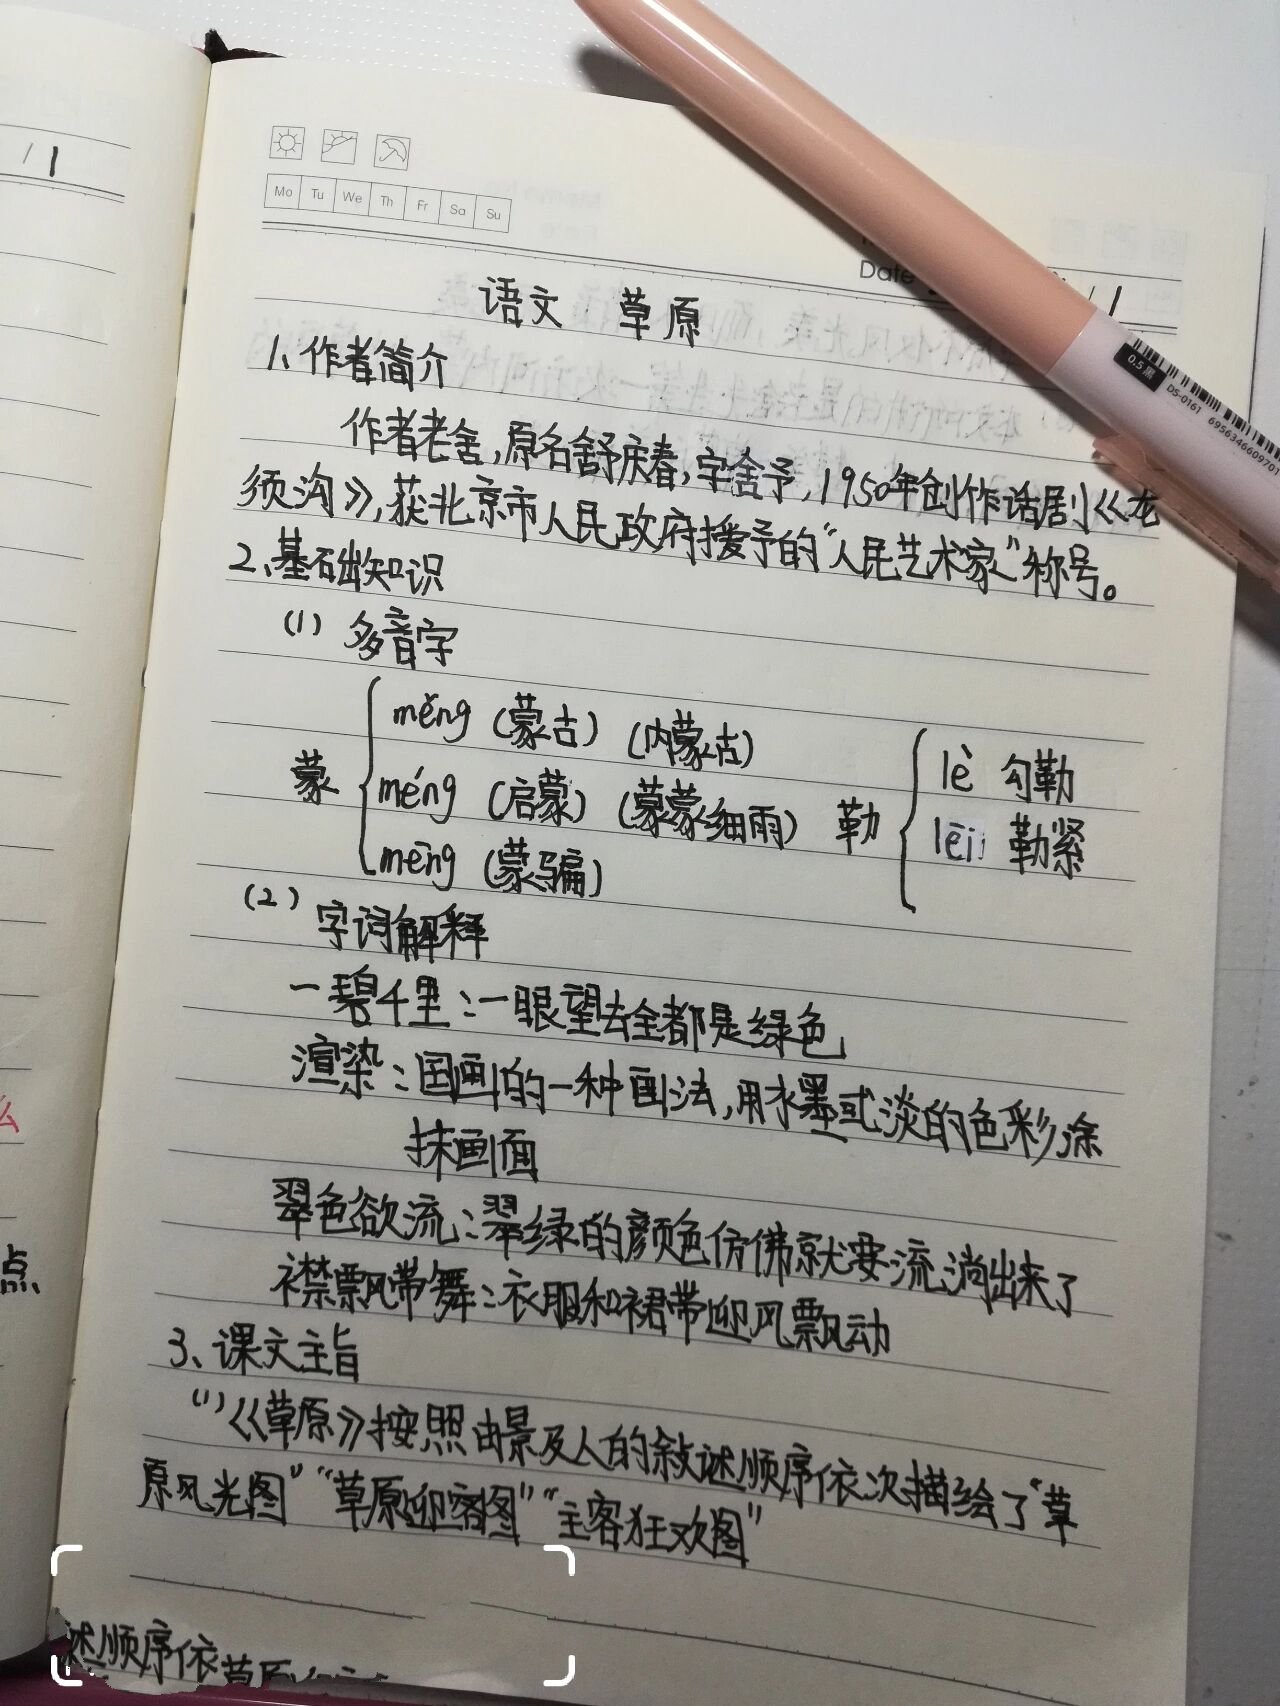 /1
Mo Tu We Th Fr Sa Su
Date /1
语文 草原
1、作者简介
作者老舍,原名舒庆春,字舍予,1950年创作话剧《龙
须沟》,获北京市人民政府授予的“人民艺术家”称号。
2、基础知识
(1) 多音字
蒙 měng (蒙古) (内蒙古)
méng (启蒙) (蒙蒙细雨)
mēng (蒙骗)
勒 lè 勾勒
lēi 勒紧
(2) 字词解释
一碧千里:一眼望去全都是绿色
渲染:国画的一种画法,用水墨或淡的色彩涂
抹画面
翠色欲流:翠绿的颜色仿佛就要流淌出来了
襟飘带舞:衣服和裙带迎风飘动
3、课文主旨
(1)《草原》按照由景及人的叙述顺序依次描绘了“草
原风光图”“草原迎客图”“主客狂欢图”
述顺序依草原
点
0.5 黑
DS-0161
6956346609701